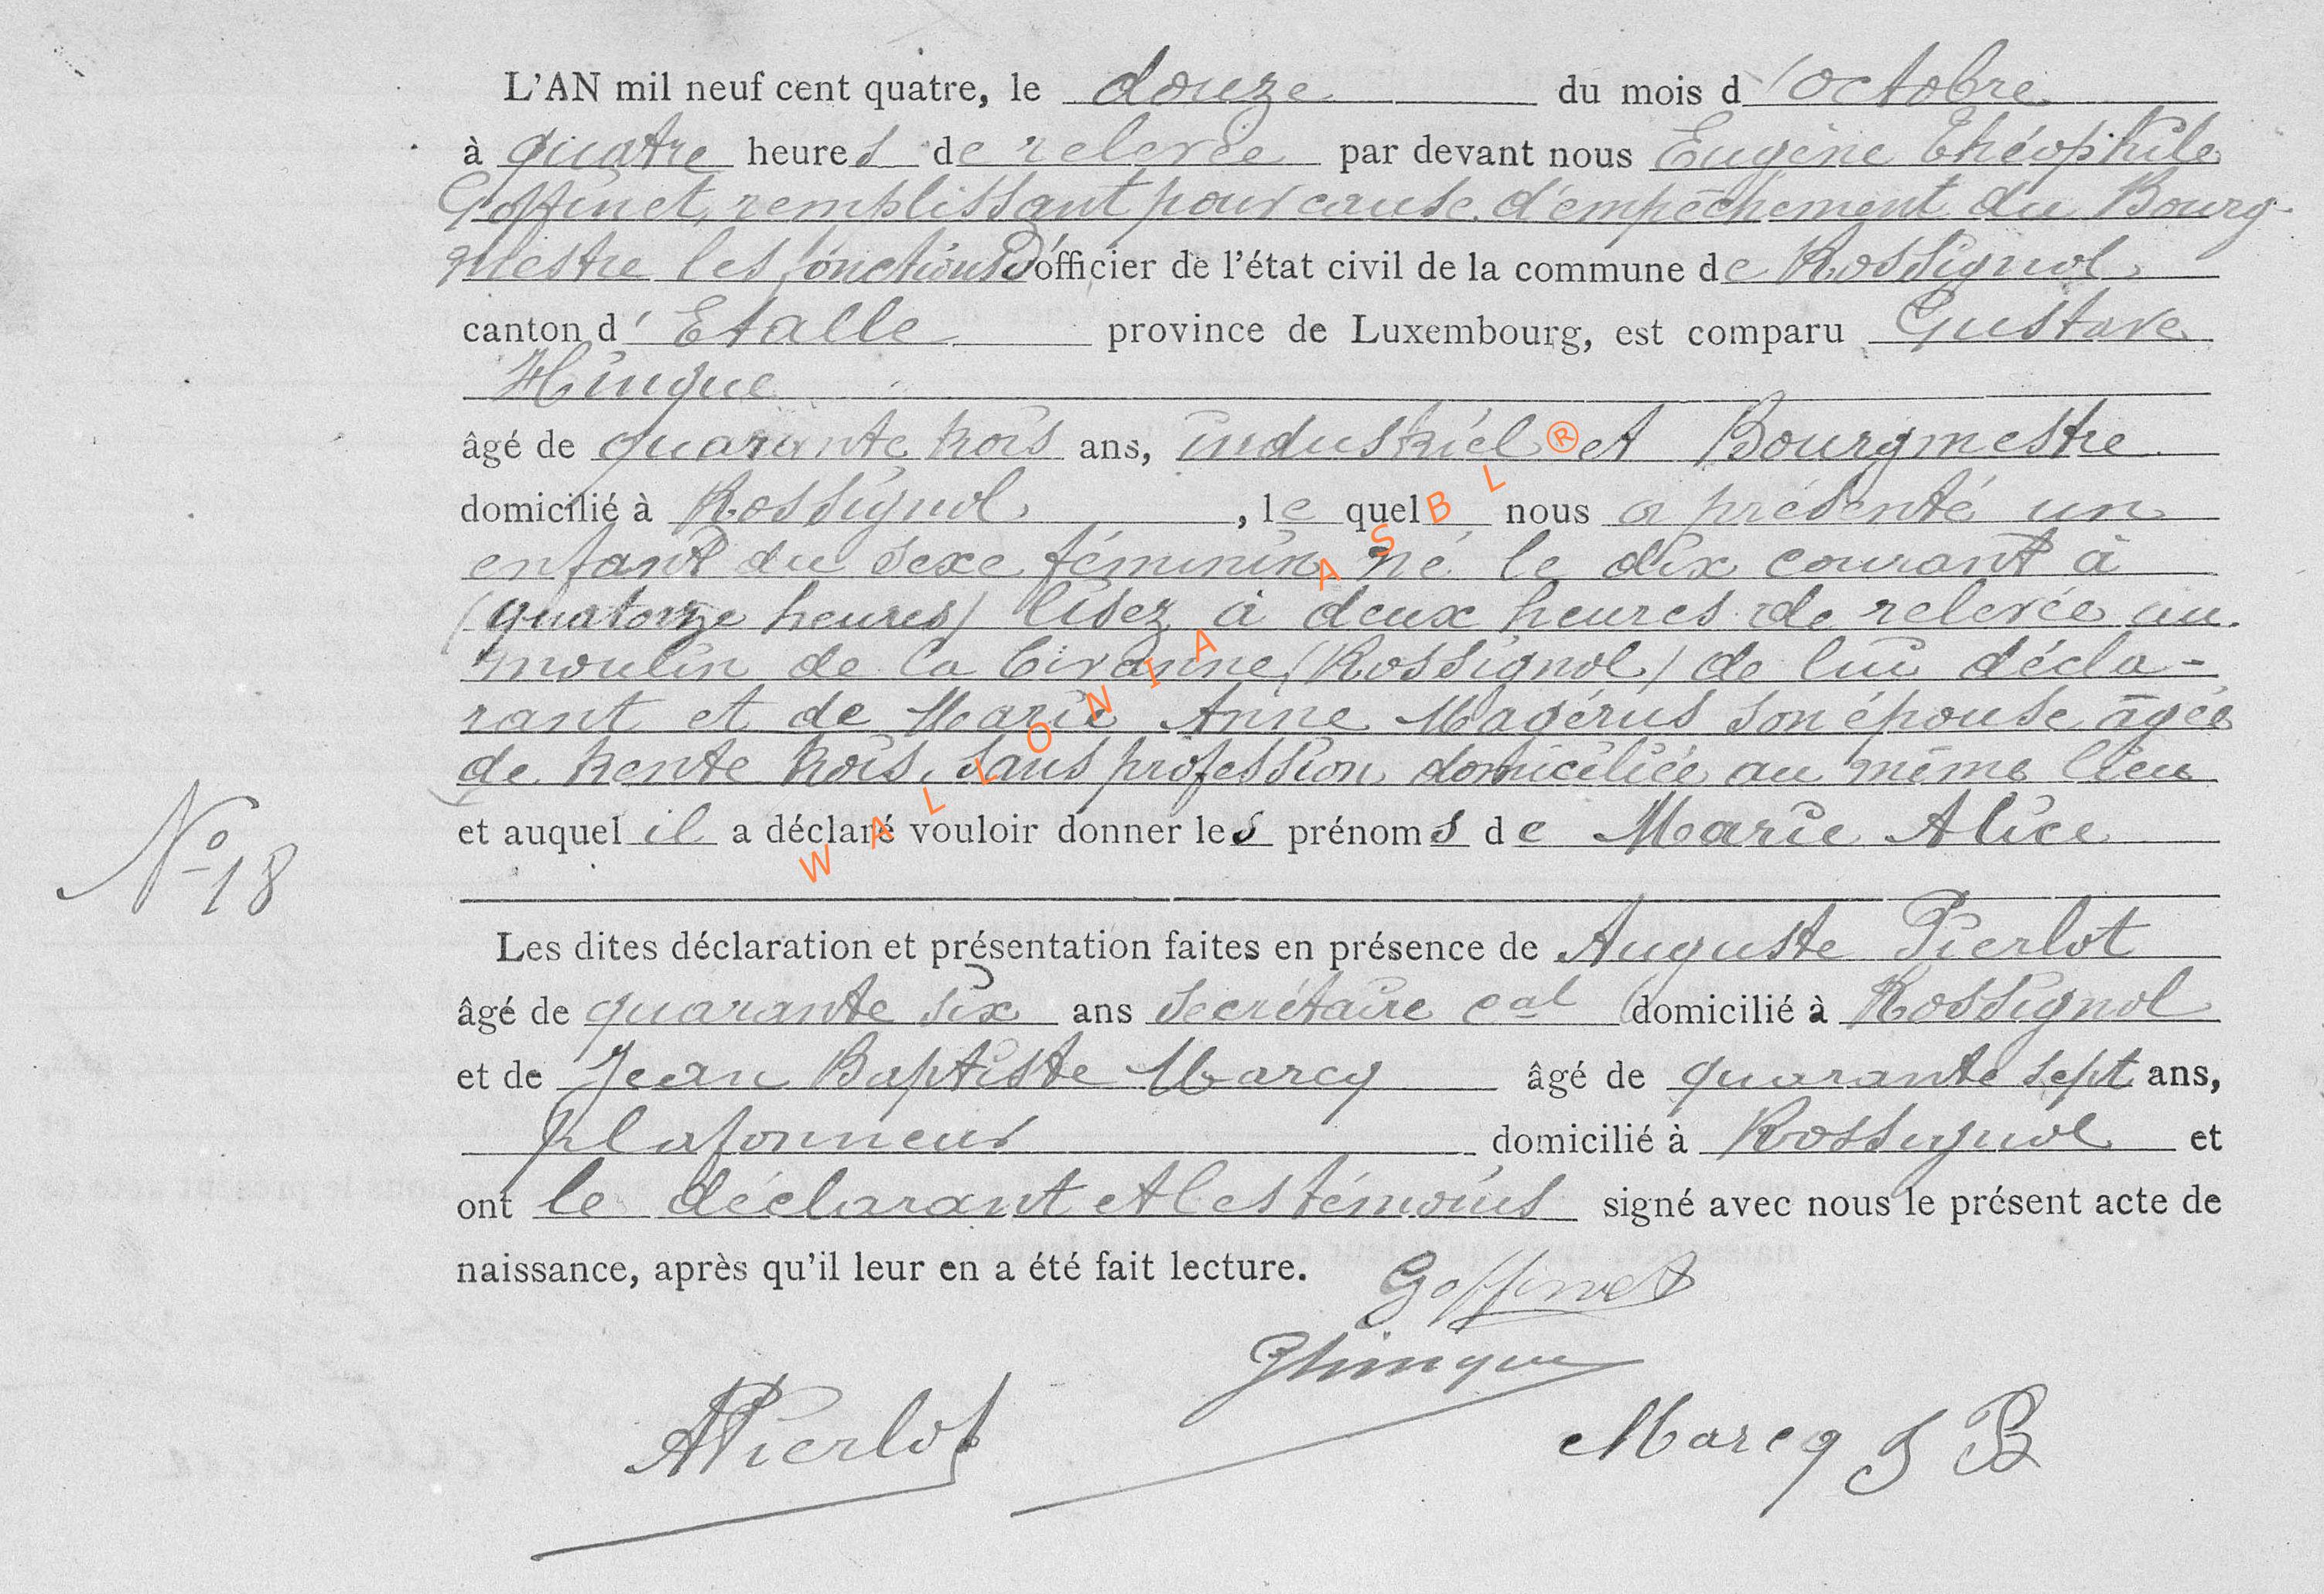 L'AN mil neuf cent quatre, le douze du mois d'octobre
à quatre heures de relevée par devant nous Eugène Théophile
Goffinet, remplissant pour cause d'empêchement du Bourg-
mestre les fonctions d'officier de l'état civil de la commune de Rossignol
canton d'Etalle province de Luxembourg, est comparu Gustave
Hurieaux
âgé de quarante trois ans, industriel et Bourgmestre
domicilié à Rossignol, le quel nous a présenté un
enfant du sexe féminin né le dix courant à
(quatorze heures) lisez à deux heures de relevée au
moulin de la Civanne (Rossignol) de lui décla-
rant et de Marie Anne Magérus son épouse âgée
de trente trois, sans profession domiciliée au même lieu
et auquel il a déclaré vouloir donner les prénoms de Marie Alice
N° 18
Les dites déclaration et présentation faites en présence de Auguste Pierlot
âgé de quarante six ans secrétaire cal domicilié à Rossignol
et de Jean Baptiste Marcq âgé de quarante sept ans,
plafonneur domicilié à Rossignol et
ont le déclarant et les témoins signé avec nous le présent acte de
naissance, après qu'il leur en a été fait lecture.
Goffinet
GHinque
APierlot
Marcq J B
WALLONIA ASBL ®